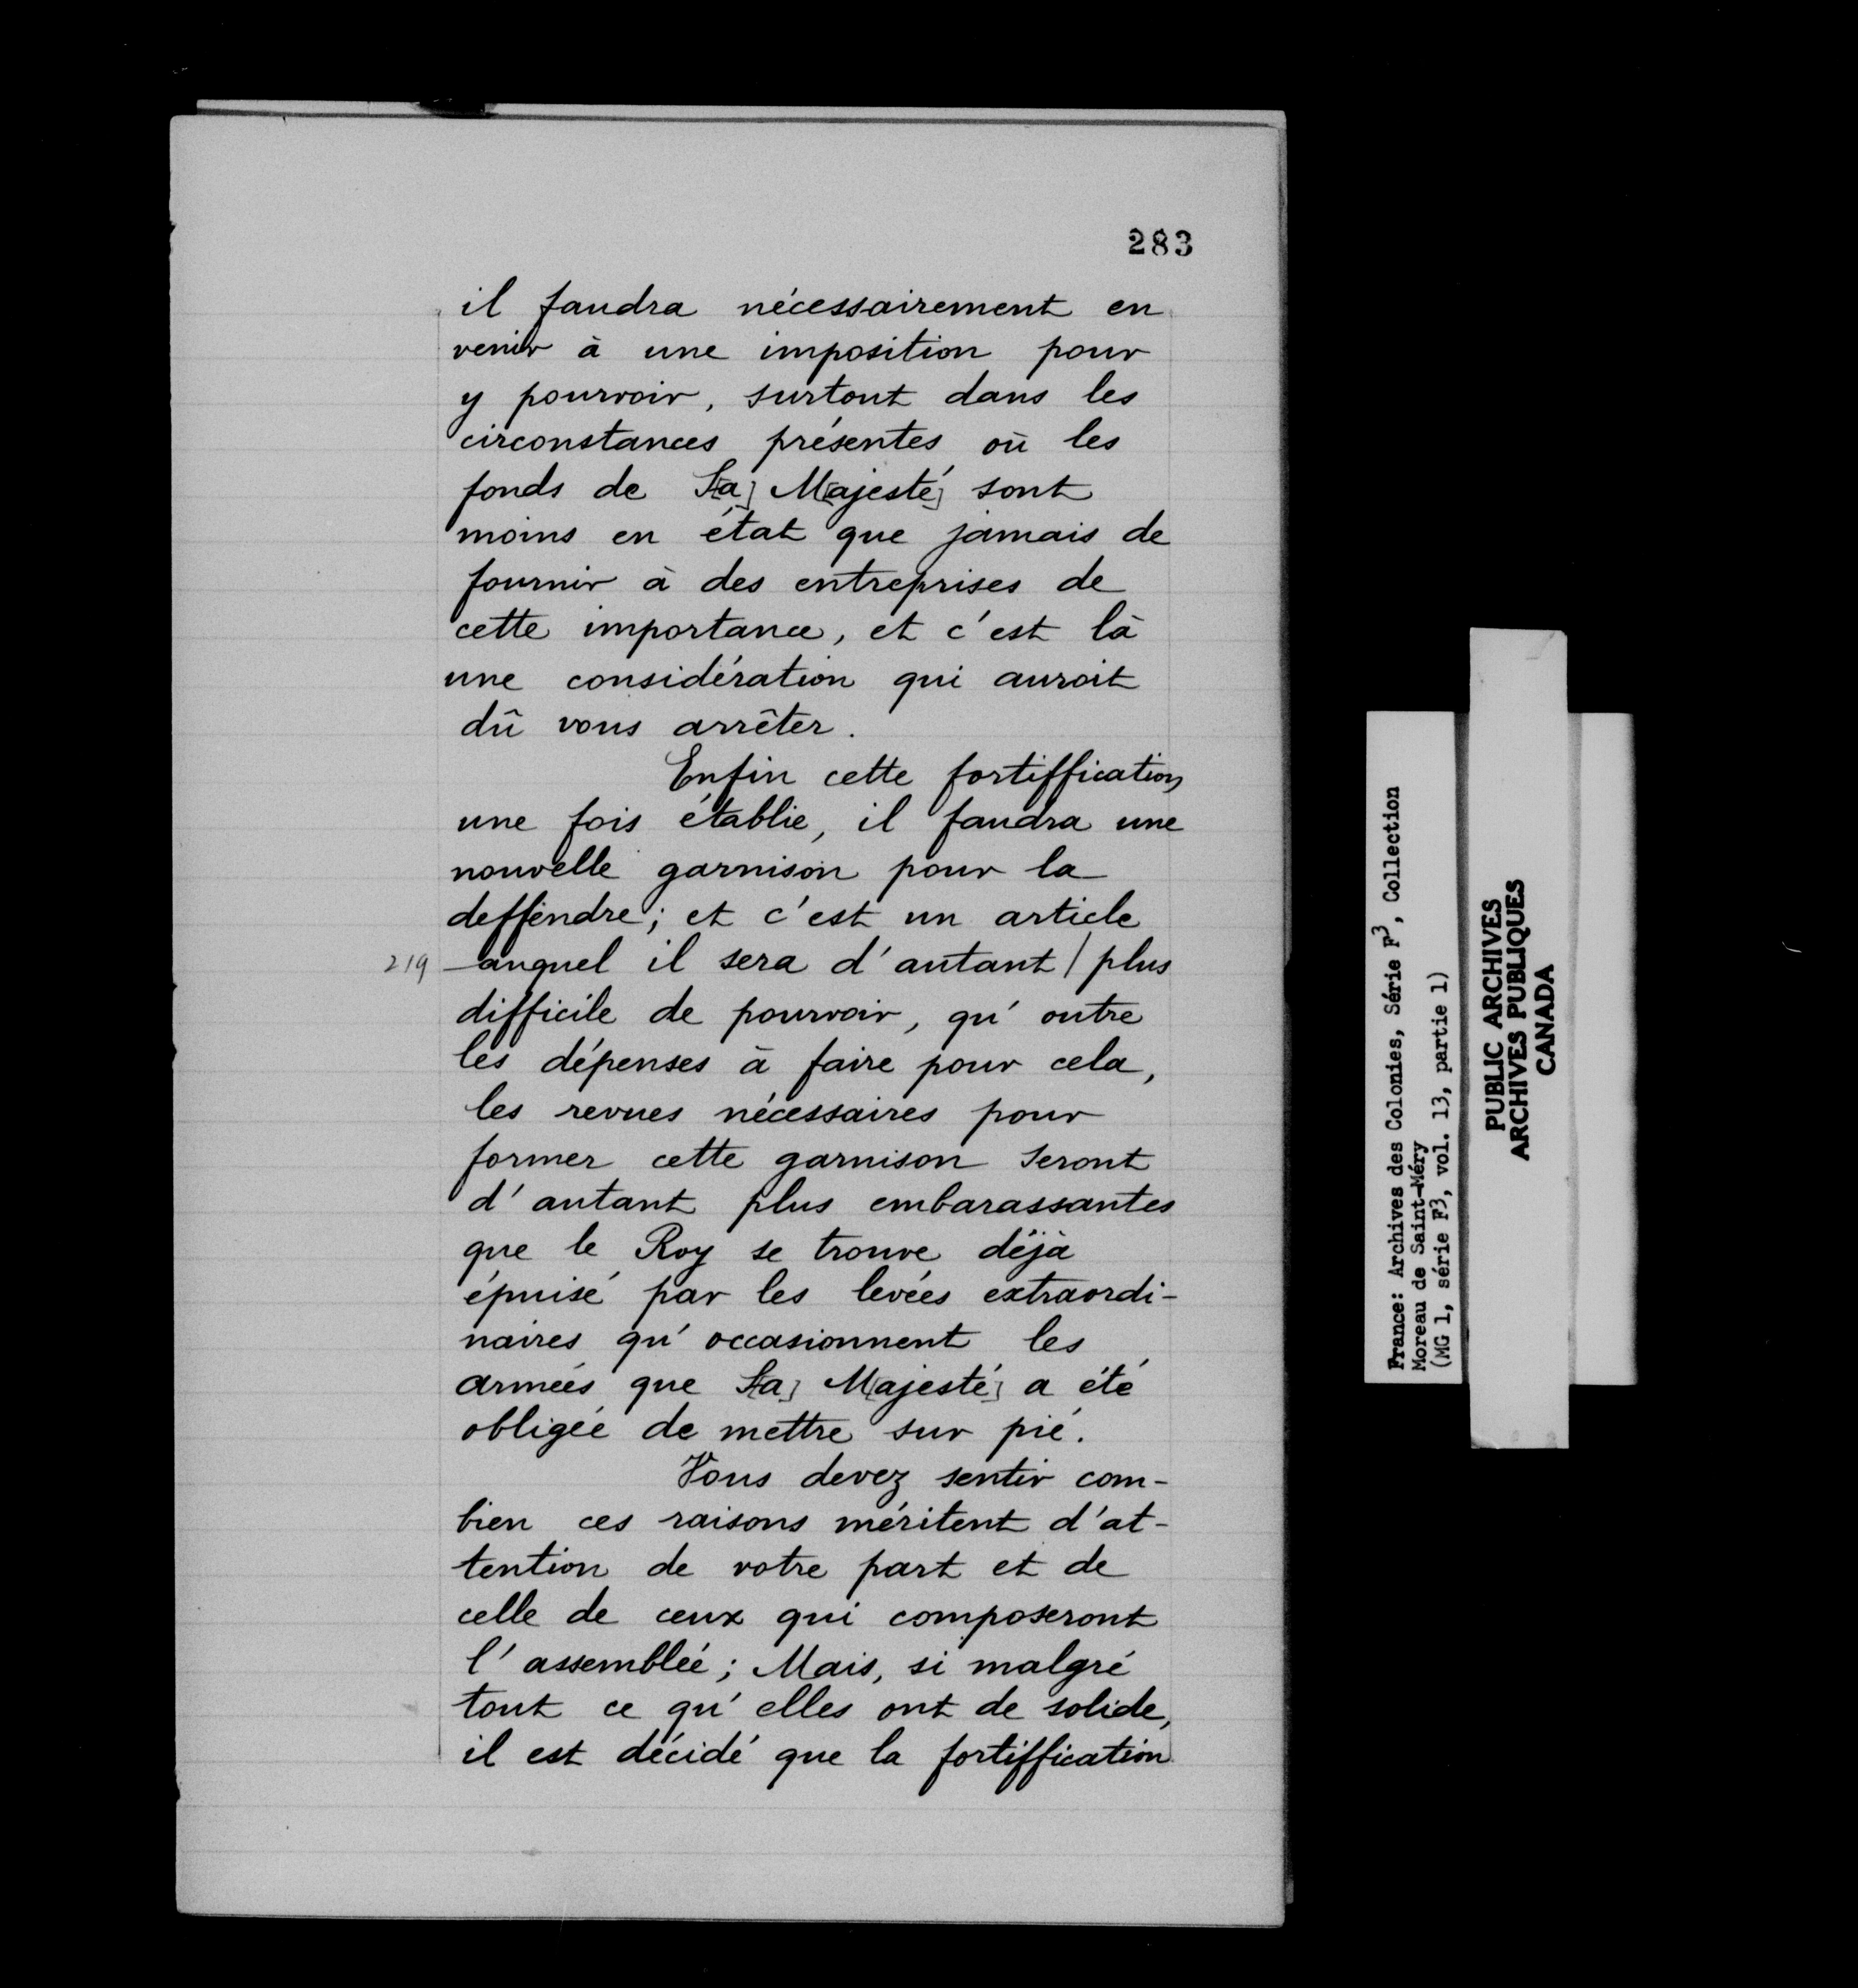 283
il faudra nécessairement en
venir à une imposition pour
y pourvoir, surtout dans les
circonstances présentes où les
fonds de S[a] M[ajesté] sont
moins en état que jamais de
fournir à des entreprises de
cette importance, et c'est là
une considération qui auroit
dû vous arrêter.
Enfin cette fortiffication
une fois établie, il faudra une
nouvelle garnison pour la
deffendre; et c'est un article
219 auquel il sera d'autant / plus
difficile de pourvoir, qu'outre
les dépenses à faire pour cela,
les revues nécessaires pour
former cette garnison seront
d'autant plus embarassantes
que le Roy se trouve déjà
épuisé par les levées extraordi-
naires qu'occasionnent les
armées que S[a] M[ajesté] a été
obligée de mettre sur pié.
Vous devez sentir com-
bien ces raisons méritent d'at-
tention de votre part et de
celle de ceux qui composeront
l'assemblée; Mais, si malgré
tout ce qu'elles ont de solide,
il est décidé que la fortiffication
France: Archives des Colonies, Série F³, Collection
Moreau de Saint-Méry
(MG 1, série F³, vol. 13, partie 1)
PUBLIC ARCHIVES
ARCHIVES PUBLIQUES
CANADA